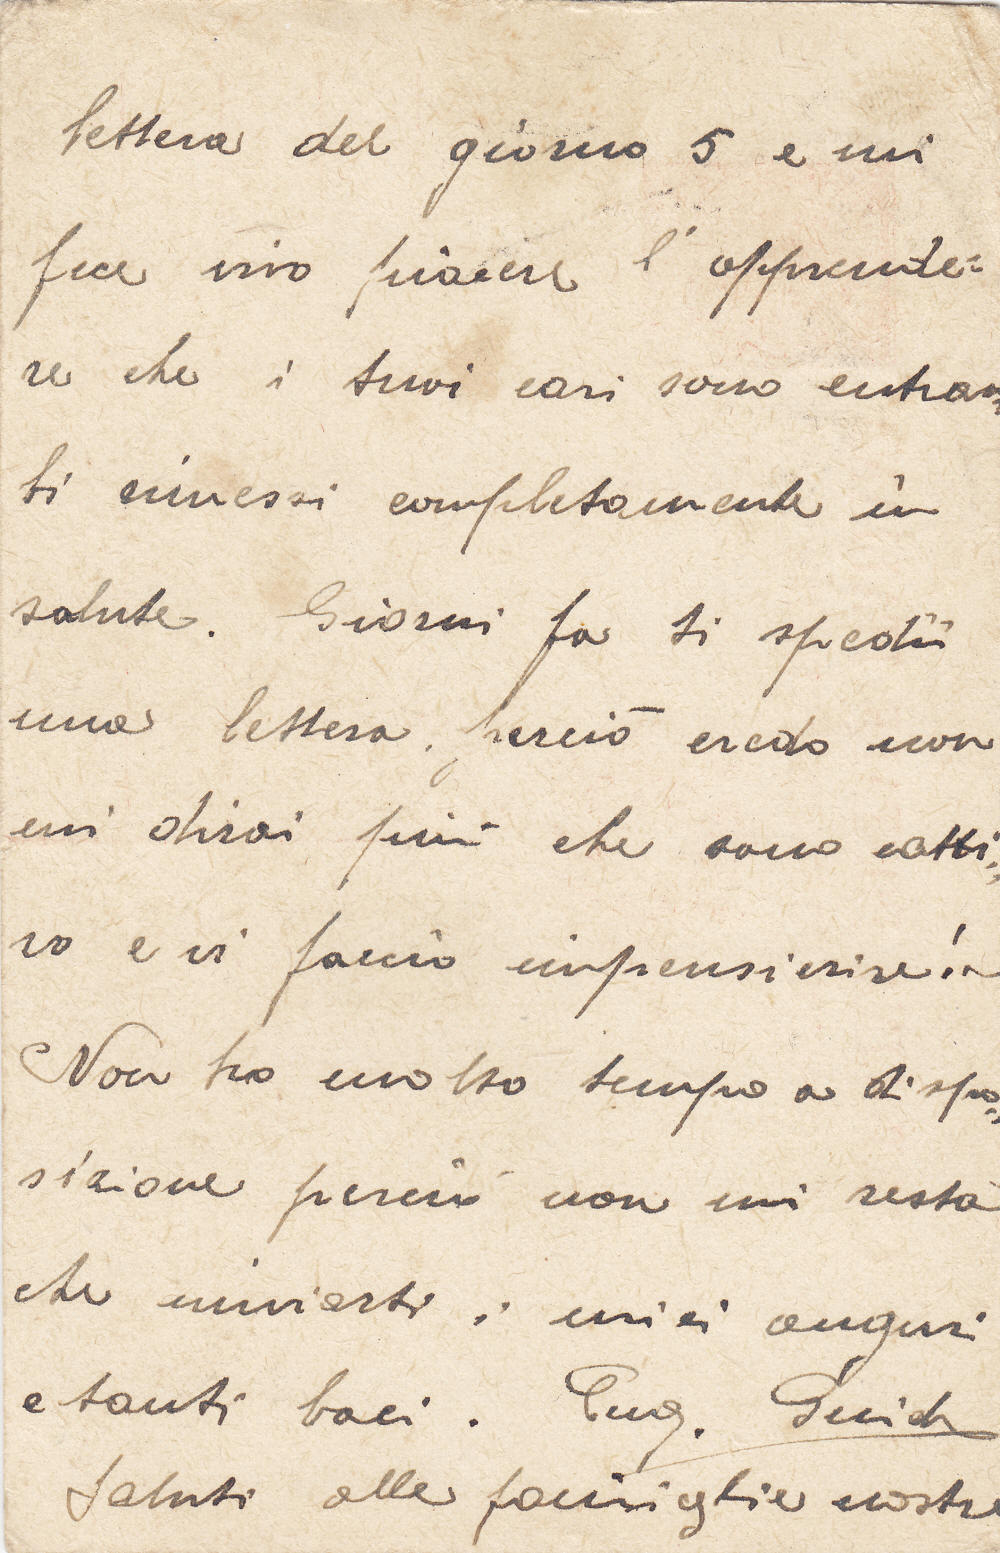 lettera del giorno 5 e mi
fece vivo piacere l'apprende=
re che i tuoi cari sono entram=
bi rimessi completamente in
salute. Giorni fa ti spedii
una lettera, perciò credo non
mi dirai più che sono catti=
vo e vi faccio impensierire!
Non ho molto tempo a dispo=
sizione perciò non mi resta
che inviarti i miei auguri
e tanti baci. Tuo. Guido
Saluti alle famiglie nostre